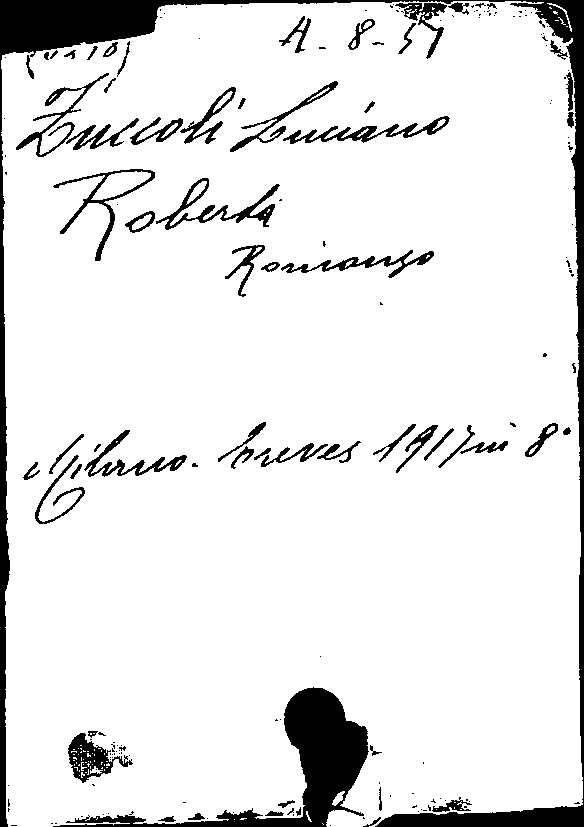 A-8-57
Zuccoli Luciano
Roberta
Romanzo
Milano. Treves 1917 in 8°